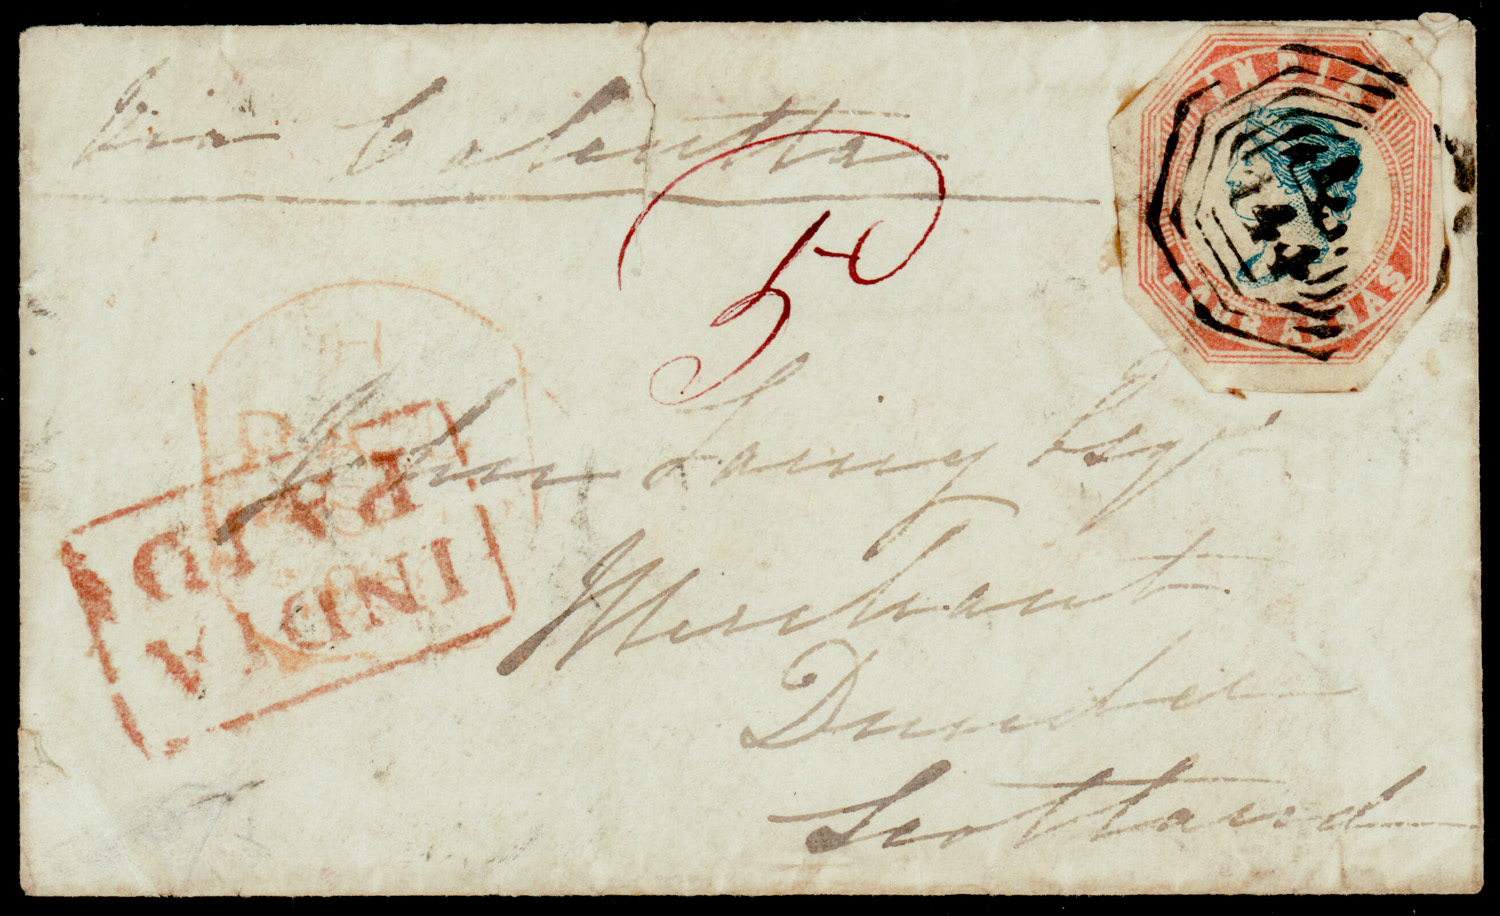 Via Calcutta
INDIA
FOUR ANNAS
B
147
5
John Laing Esqr
Merchant
Dundee
Scotland
INDIA
PAID